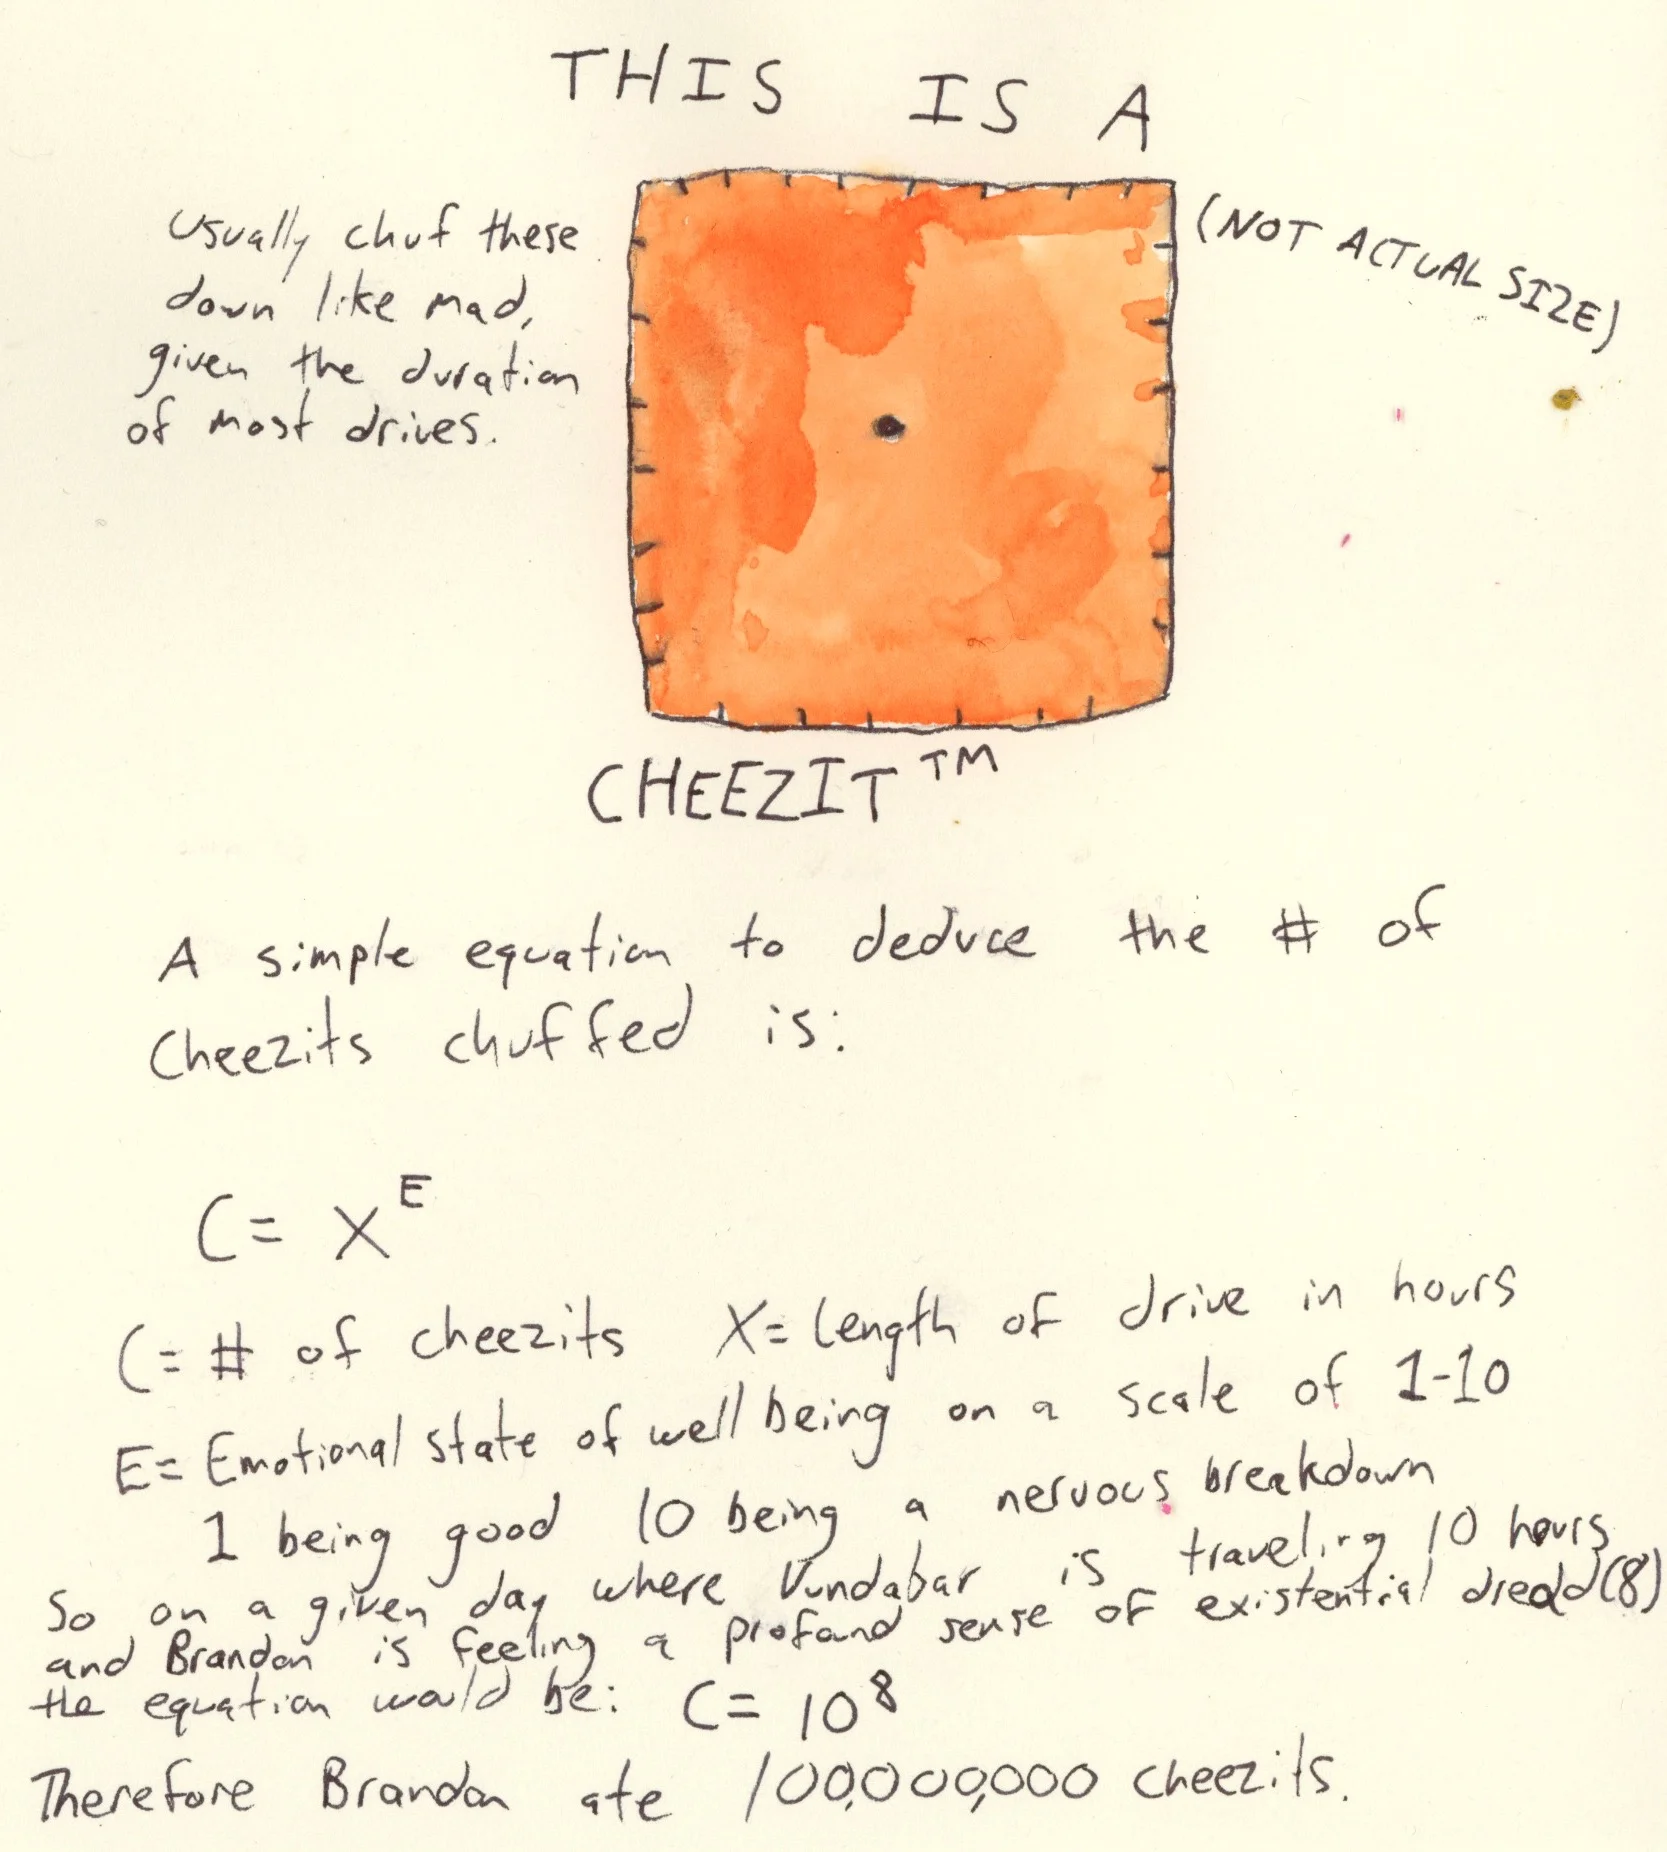 THIS IS A
Usually chuf these
down like mad,
given the duration
of most drives.
(NOT ACTUAL SIZE)
CHEEZIT™
A simple equation to deduce the # of
Cheezits chuffed is:
C= X^E
C= # of cheezits X= length of drive in hours
E= Emotional state of well being on a scale of 1-10
1 being good 10 being a nervous breakdown
So on a given day where Vundabar is traveling 10 hours
and Brandon is feeling a profound sense of existential dread(8)
the equation would be: C= 10^8
Therefore Brandon ate 100,000,000 cheezits.